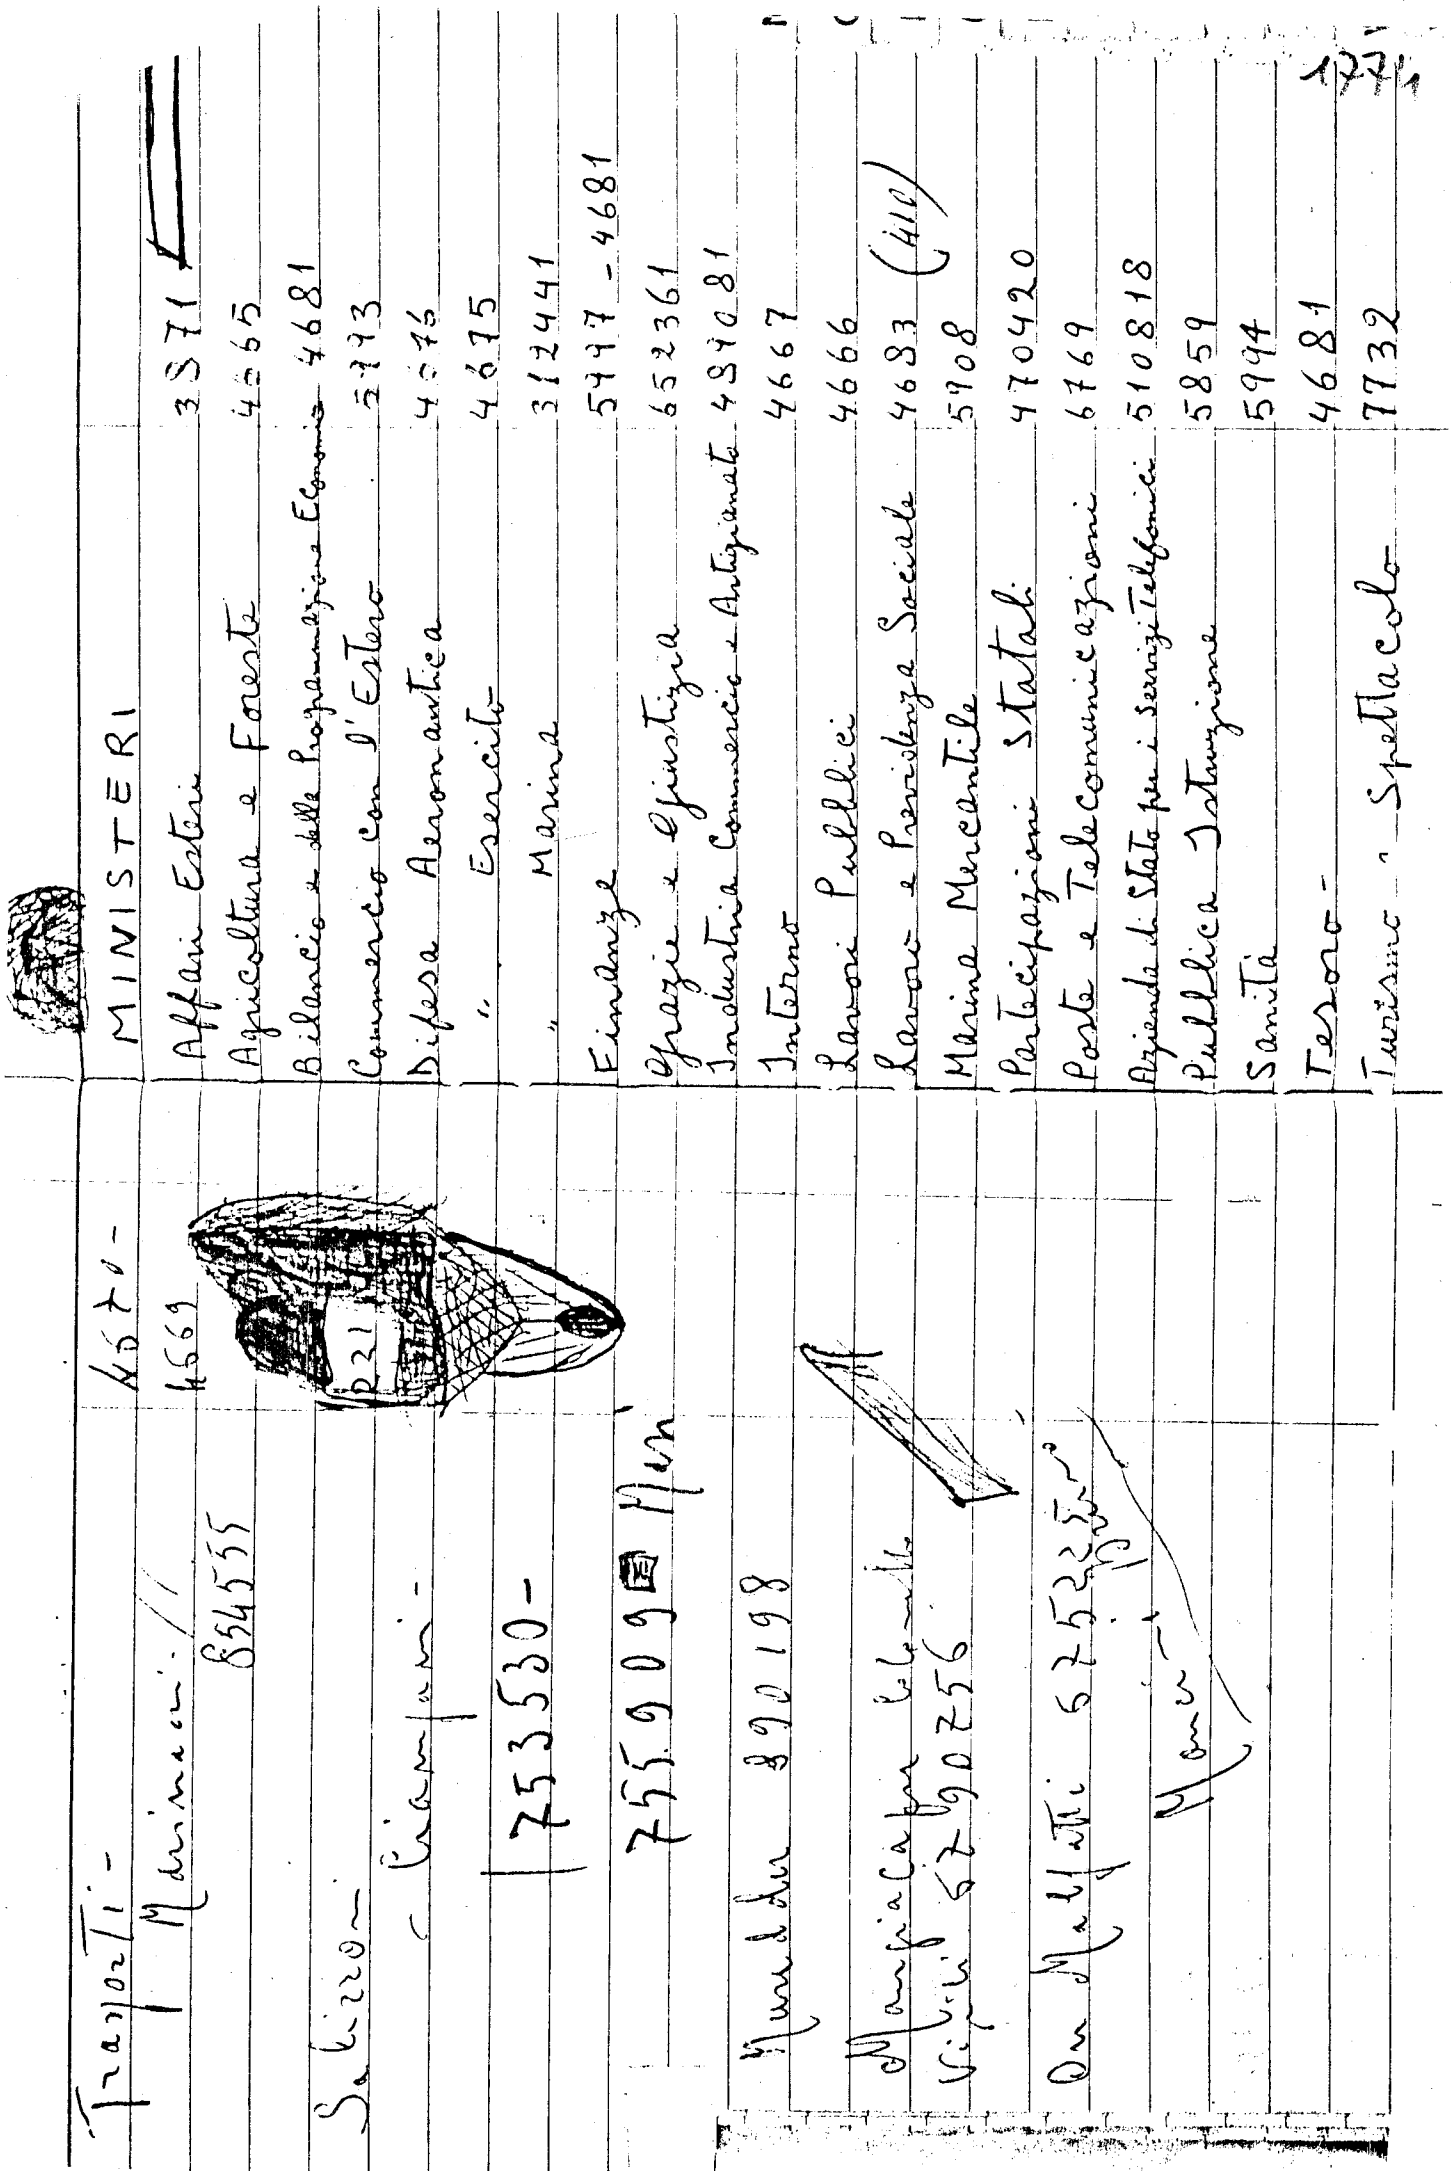 1774
MINISTERI
Affari Esteri 3971
Agricoltura e Foreste 4665
Bilancio e della Programmazione Economica 4681
Commercio con l'Estero 5993
Difesa Aeronautica 4676
" Esercito 4675
" Marina 312441
Finanze 5997 - 4681
Grazie e Giustizia 652361
Industria Commercio e Artigianato 489081
Interno 4667
Lavori Pubblici 4666
Lavoro e Previdenza Sociale 4683 (410)
Marina Mercantile 5908
Partecipazioni Statali 470420
Poste e Telecomunicazioni 6769
Azienda di Stato per i servizi Telefonici 510818
Pubblica Istruzione 5859
Sanità 5994
Tesoro - 4681
Turismo - Spettacolo 7732
Trasporti - 4670 -
4669
854555
Salizzoni
Ciampani -
753530 -
755909
Murddu 890198
Vigili 6790756
On Malfatti 675225